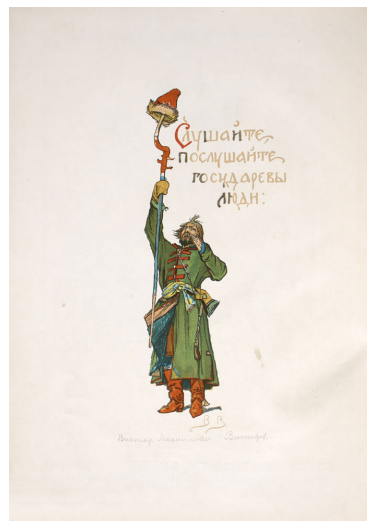 Слушайте,
послушайте
государевы
люди:
В В
Виктор Михайлович Васнецов.